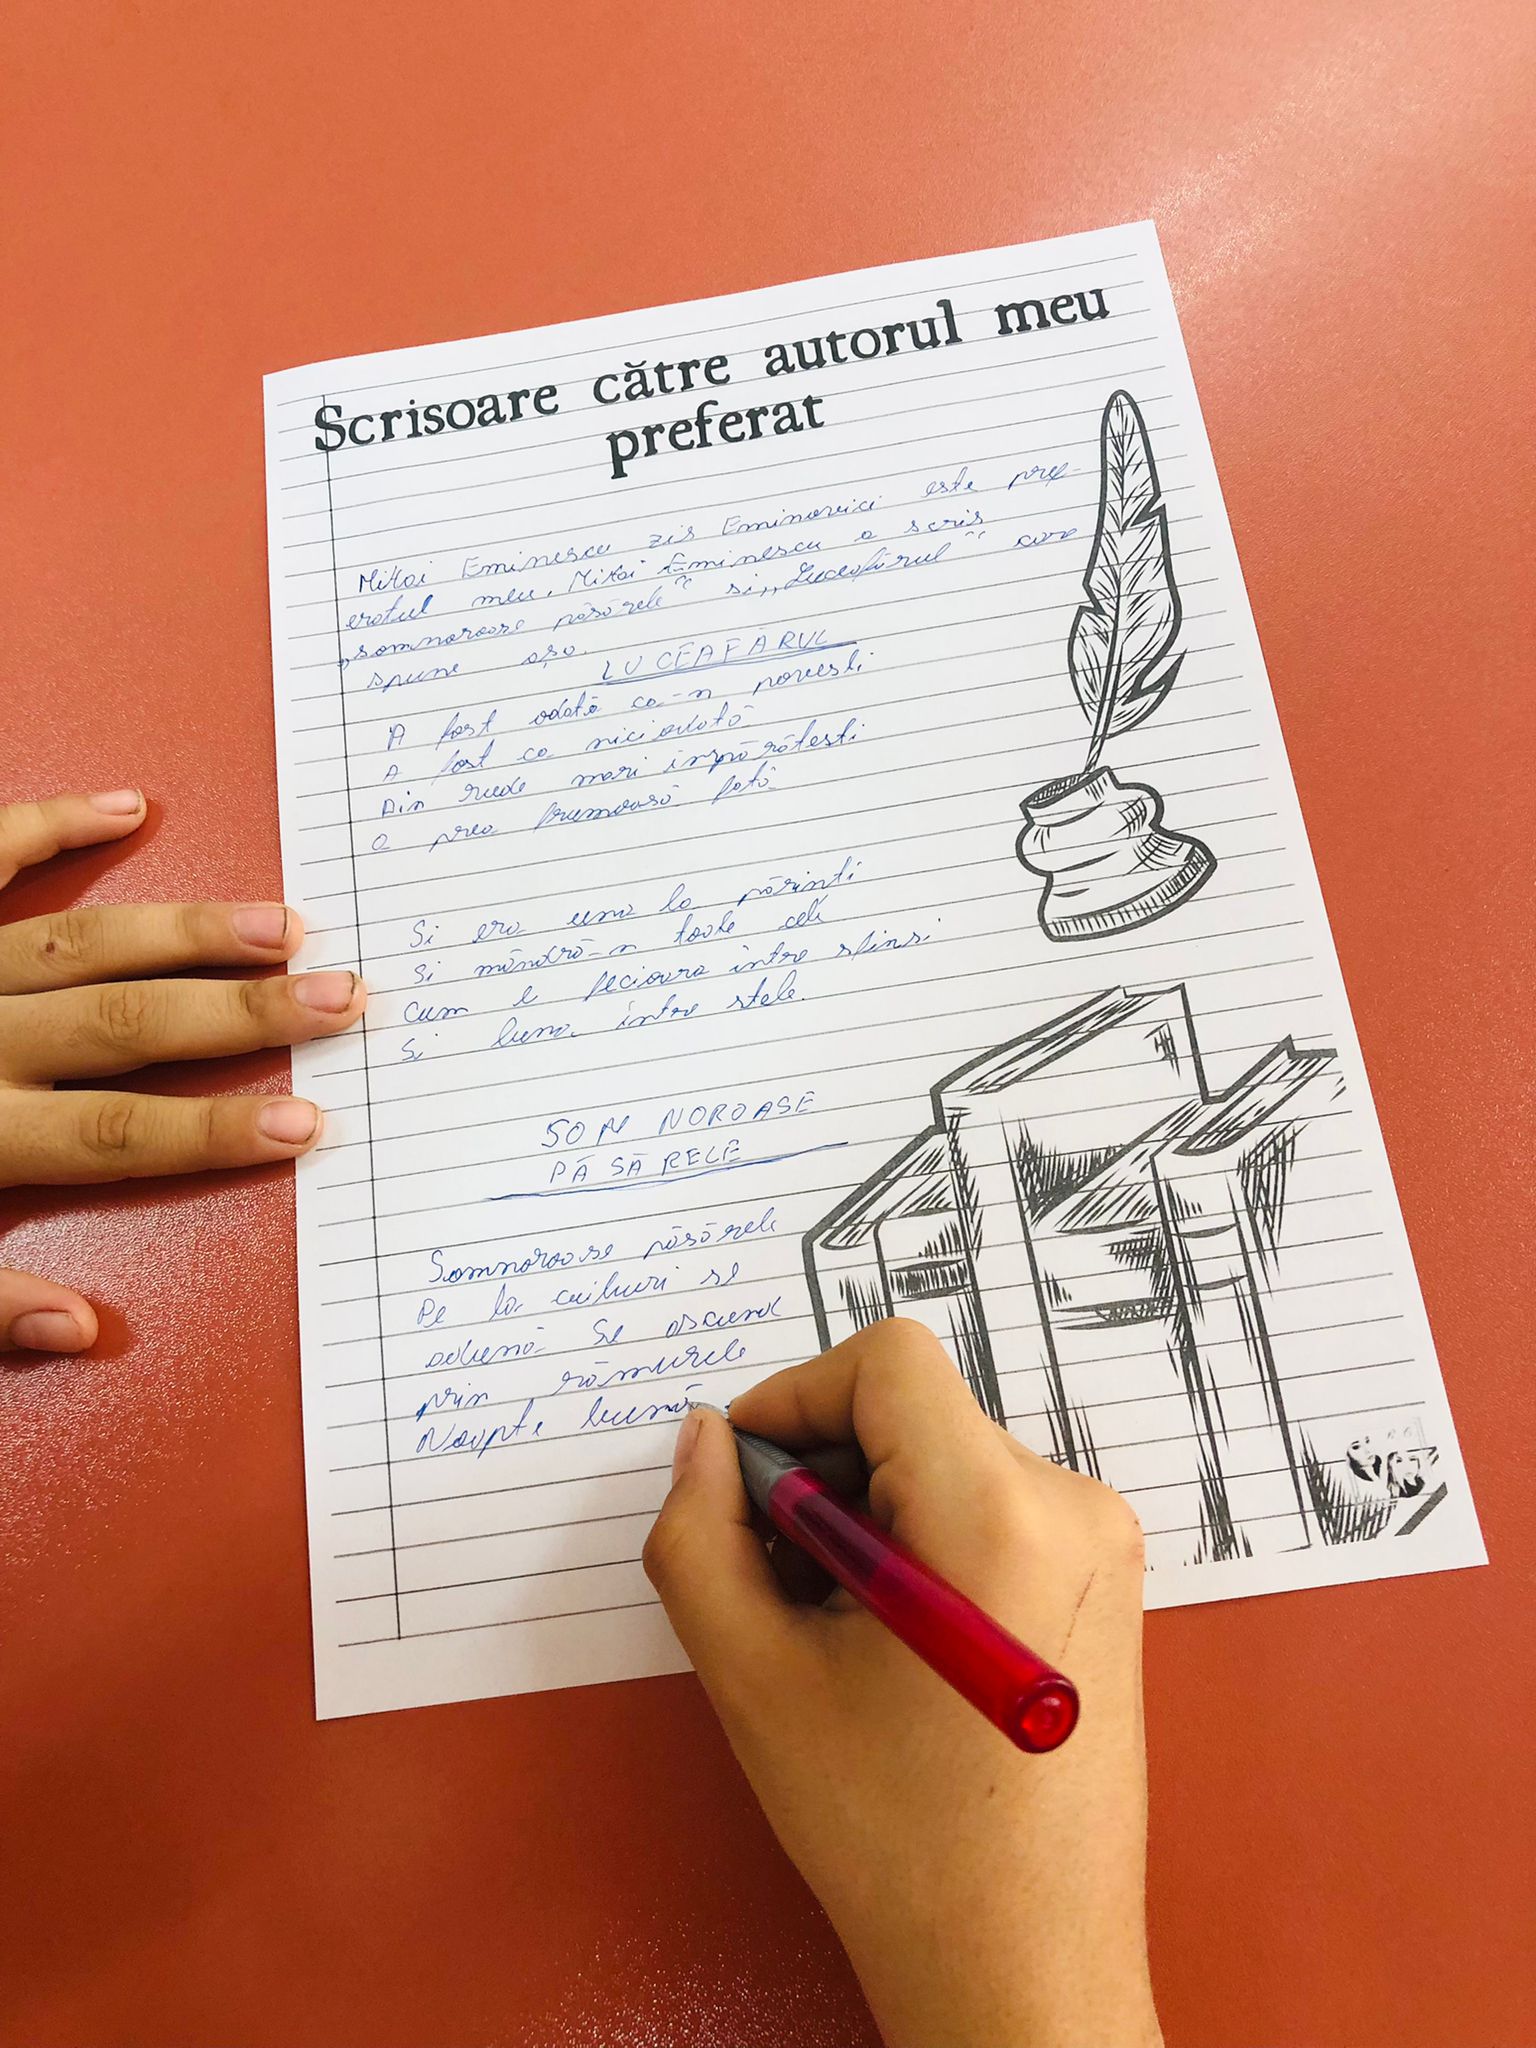 Scrisoare către autorul meu
preferat
Mihai Eminescu zis Eminovici este pref-
eratul meu. Mihai Eminescu a scris
„somnoroase păsărele“ si „Luceafărul“ care
spune așa.
LUCEAFĂRUL
A fost odată ca-n povesti
A fost ca niciodată
Din rude mari împărătesti
O prea frumoasă fată
Si era una la părinti
Si mândră-n toate cele
Cum e fecioara între sfinsi
Si luna între stele.
SOM NOROASE
PĂSĂRELE
Somnoroase păsărele
Pe la cuiburi se
adună Se ascund
prin rămurele
Noapte bună